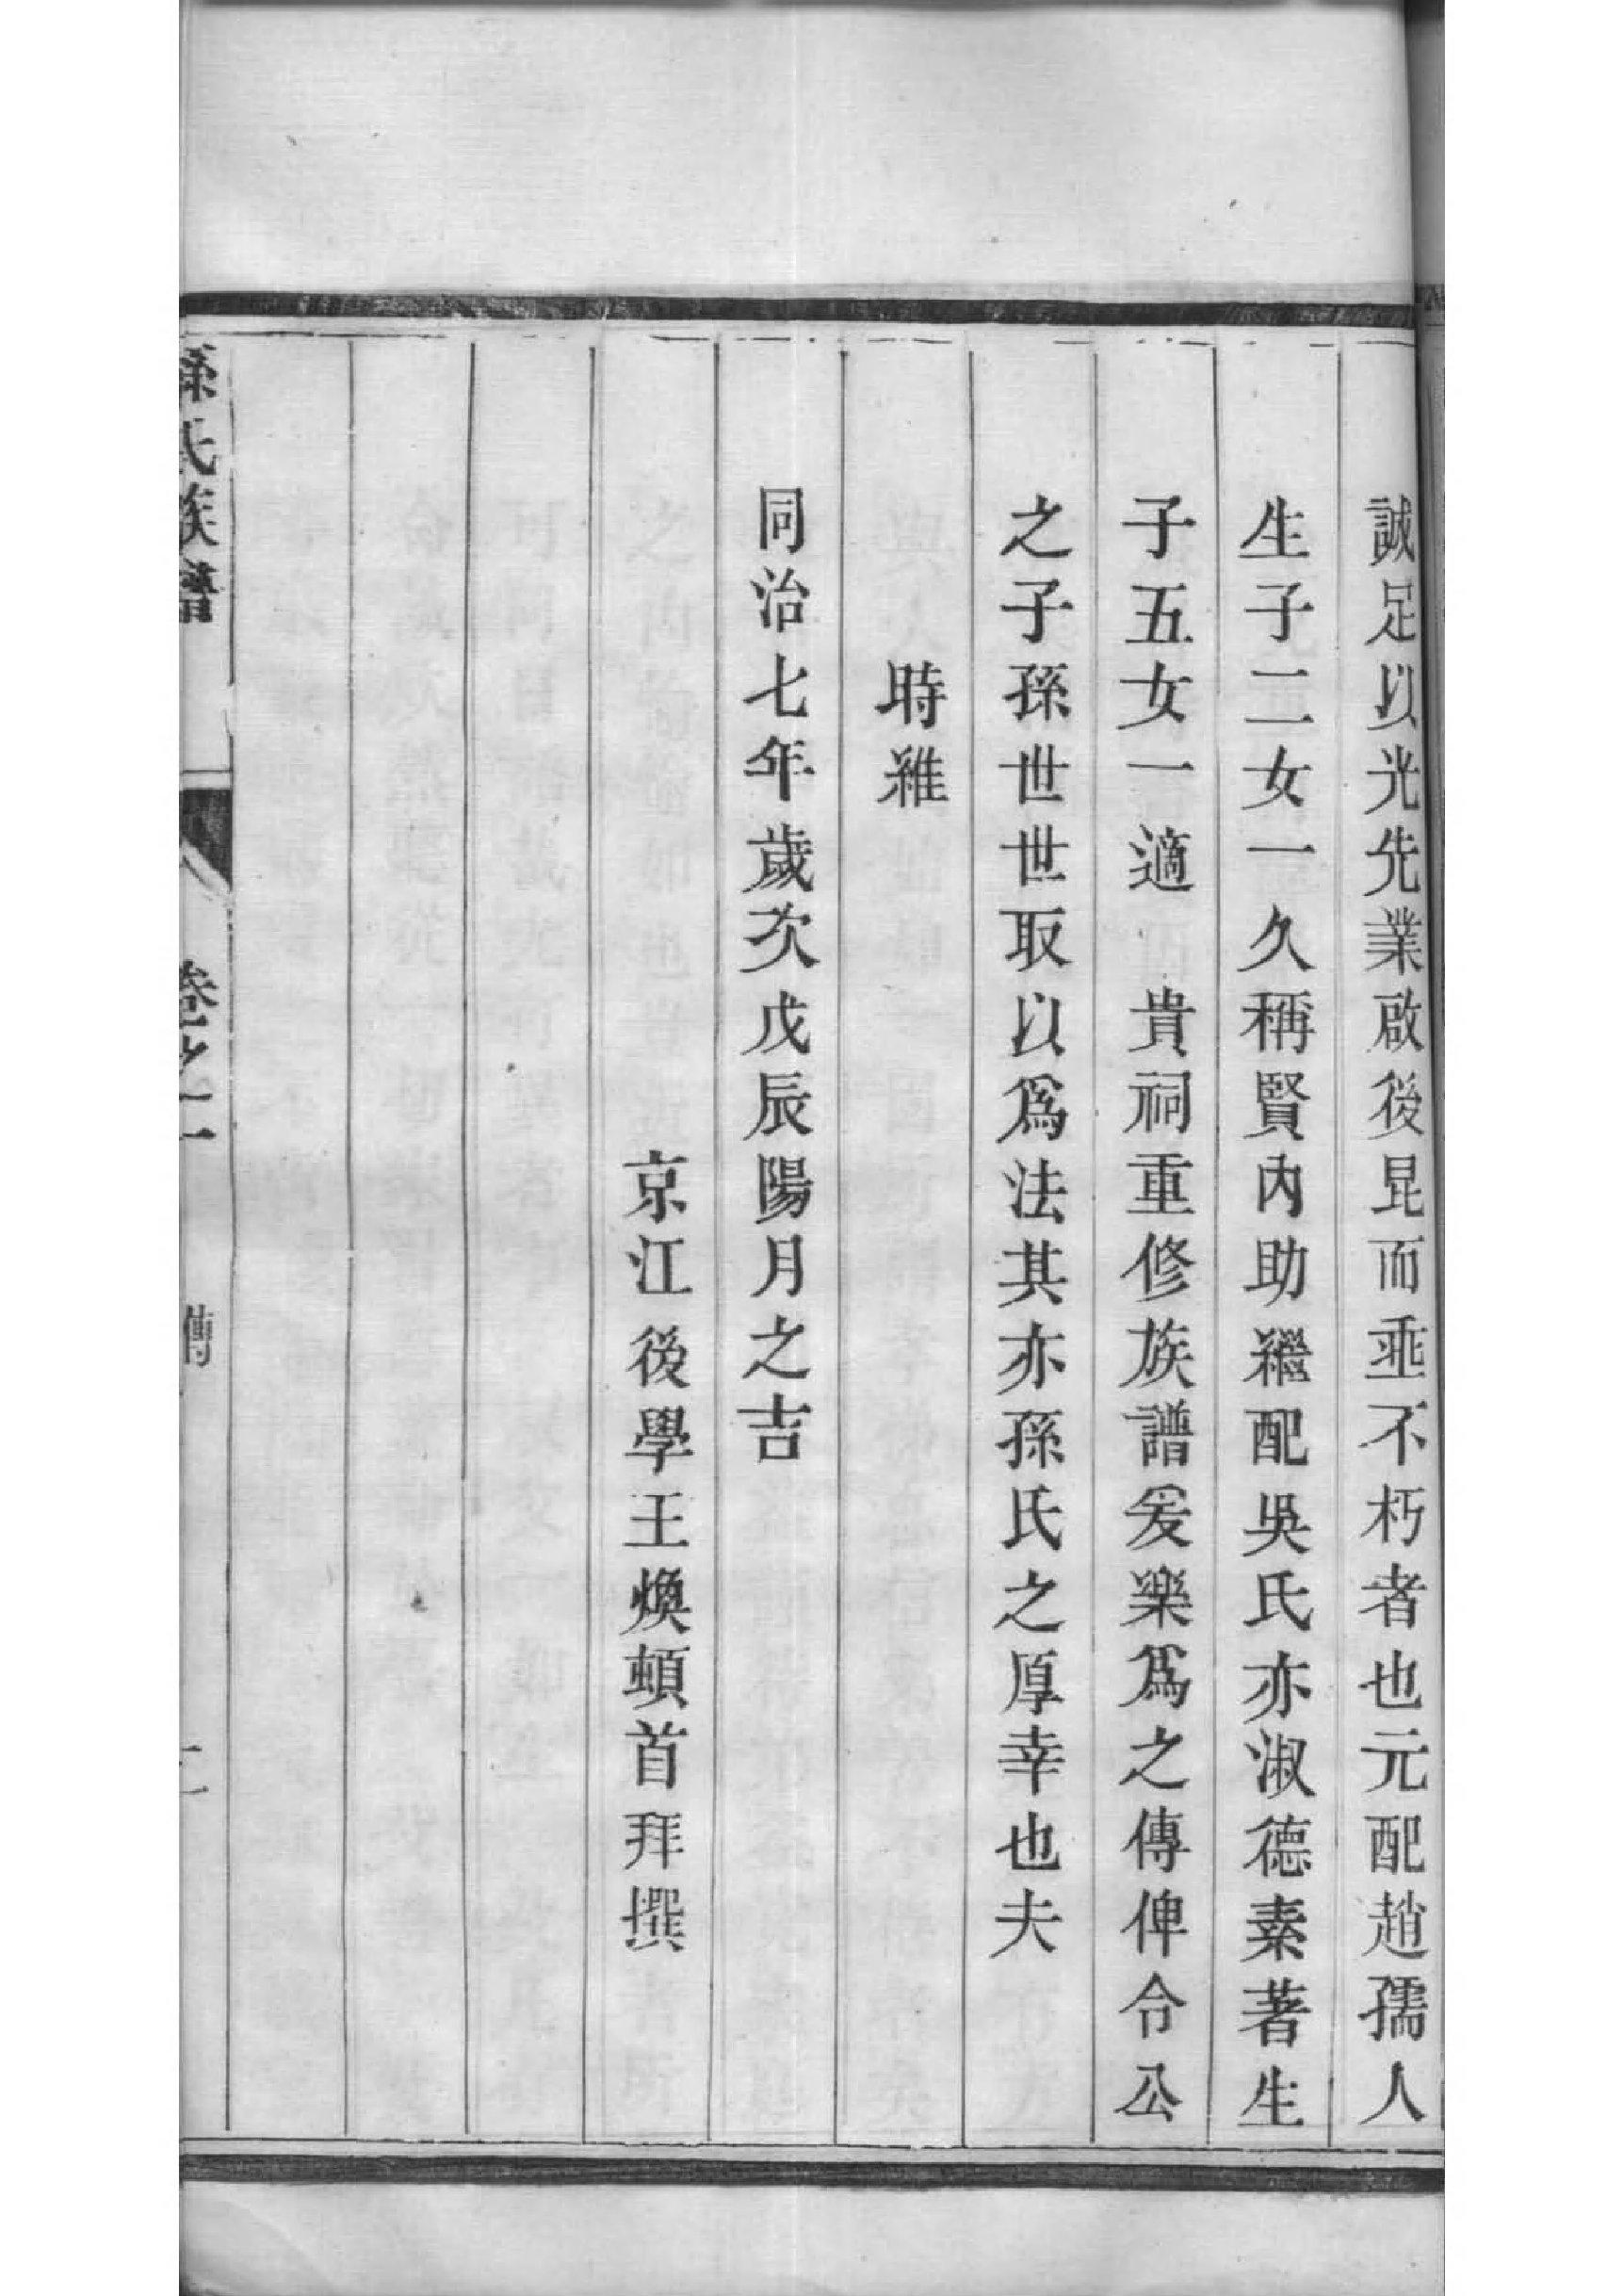 誠足以光先業啟後昆而垂不朽者也元配趙孺人
生子二女一久稱賢內助繼配吳氏亦淑德素著生
子五女一適　貴祠重修族譜爰樂爲之傳俾令公
之子孫世世取以爲法其亦孫氏之厚幸也夫
時雍
同治七年歲次戊辰陽月之吉
京江後學王煥頓首拜撰
孫氏族譜　卷之一　傳